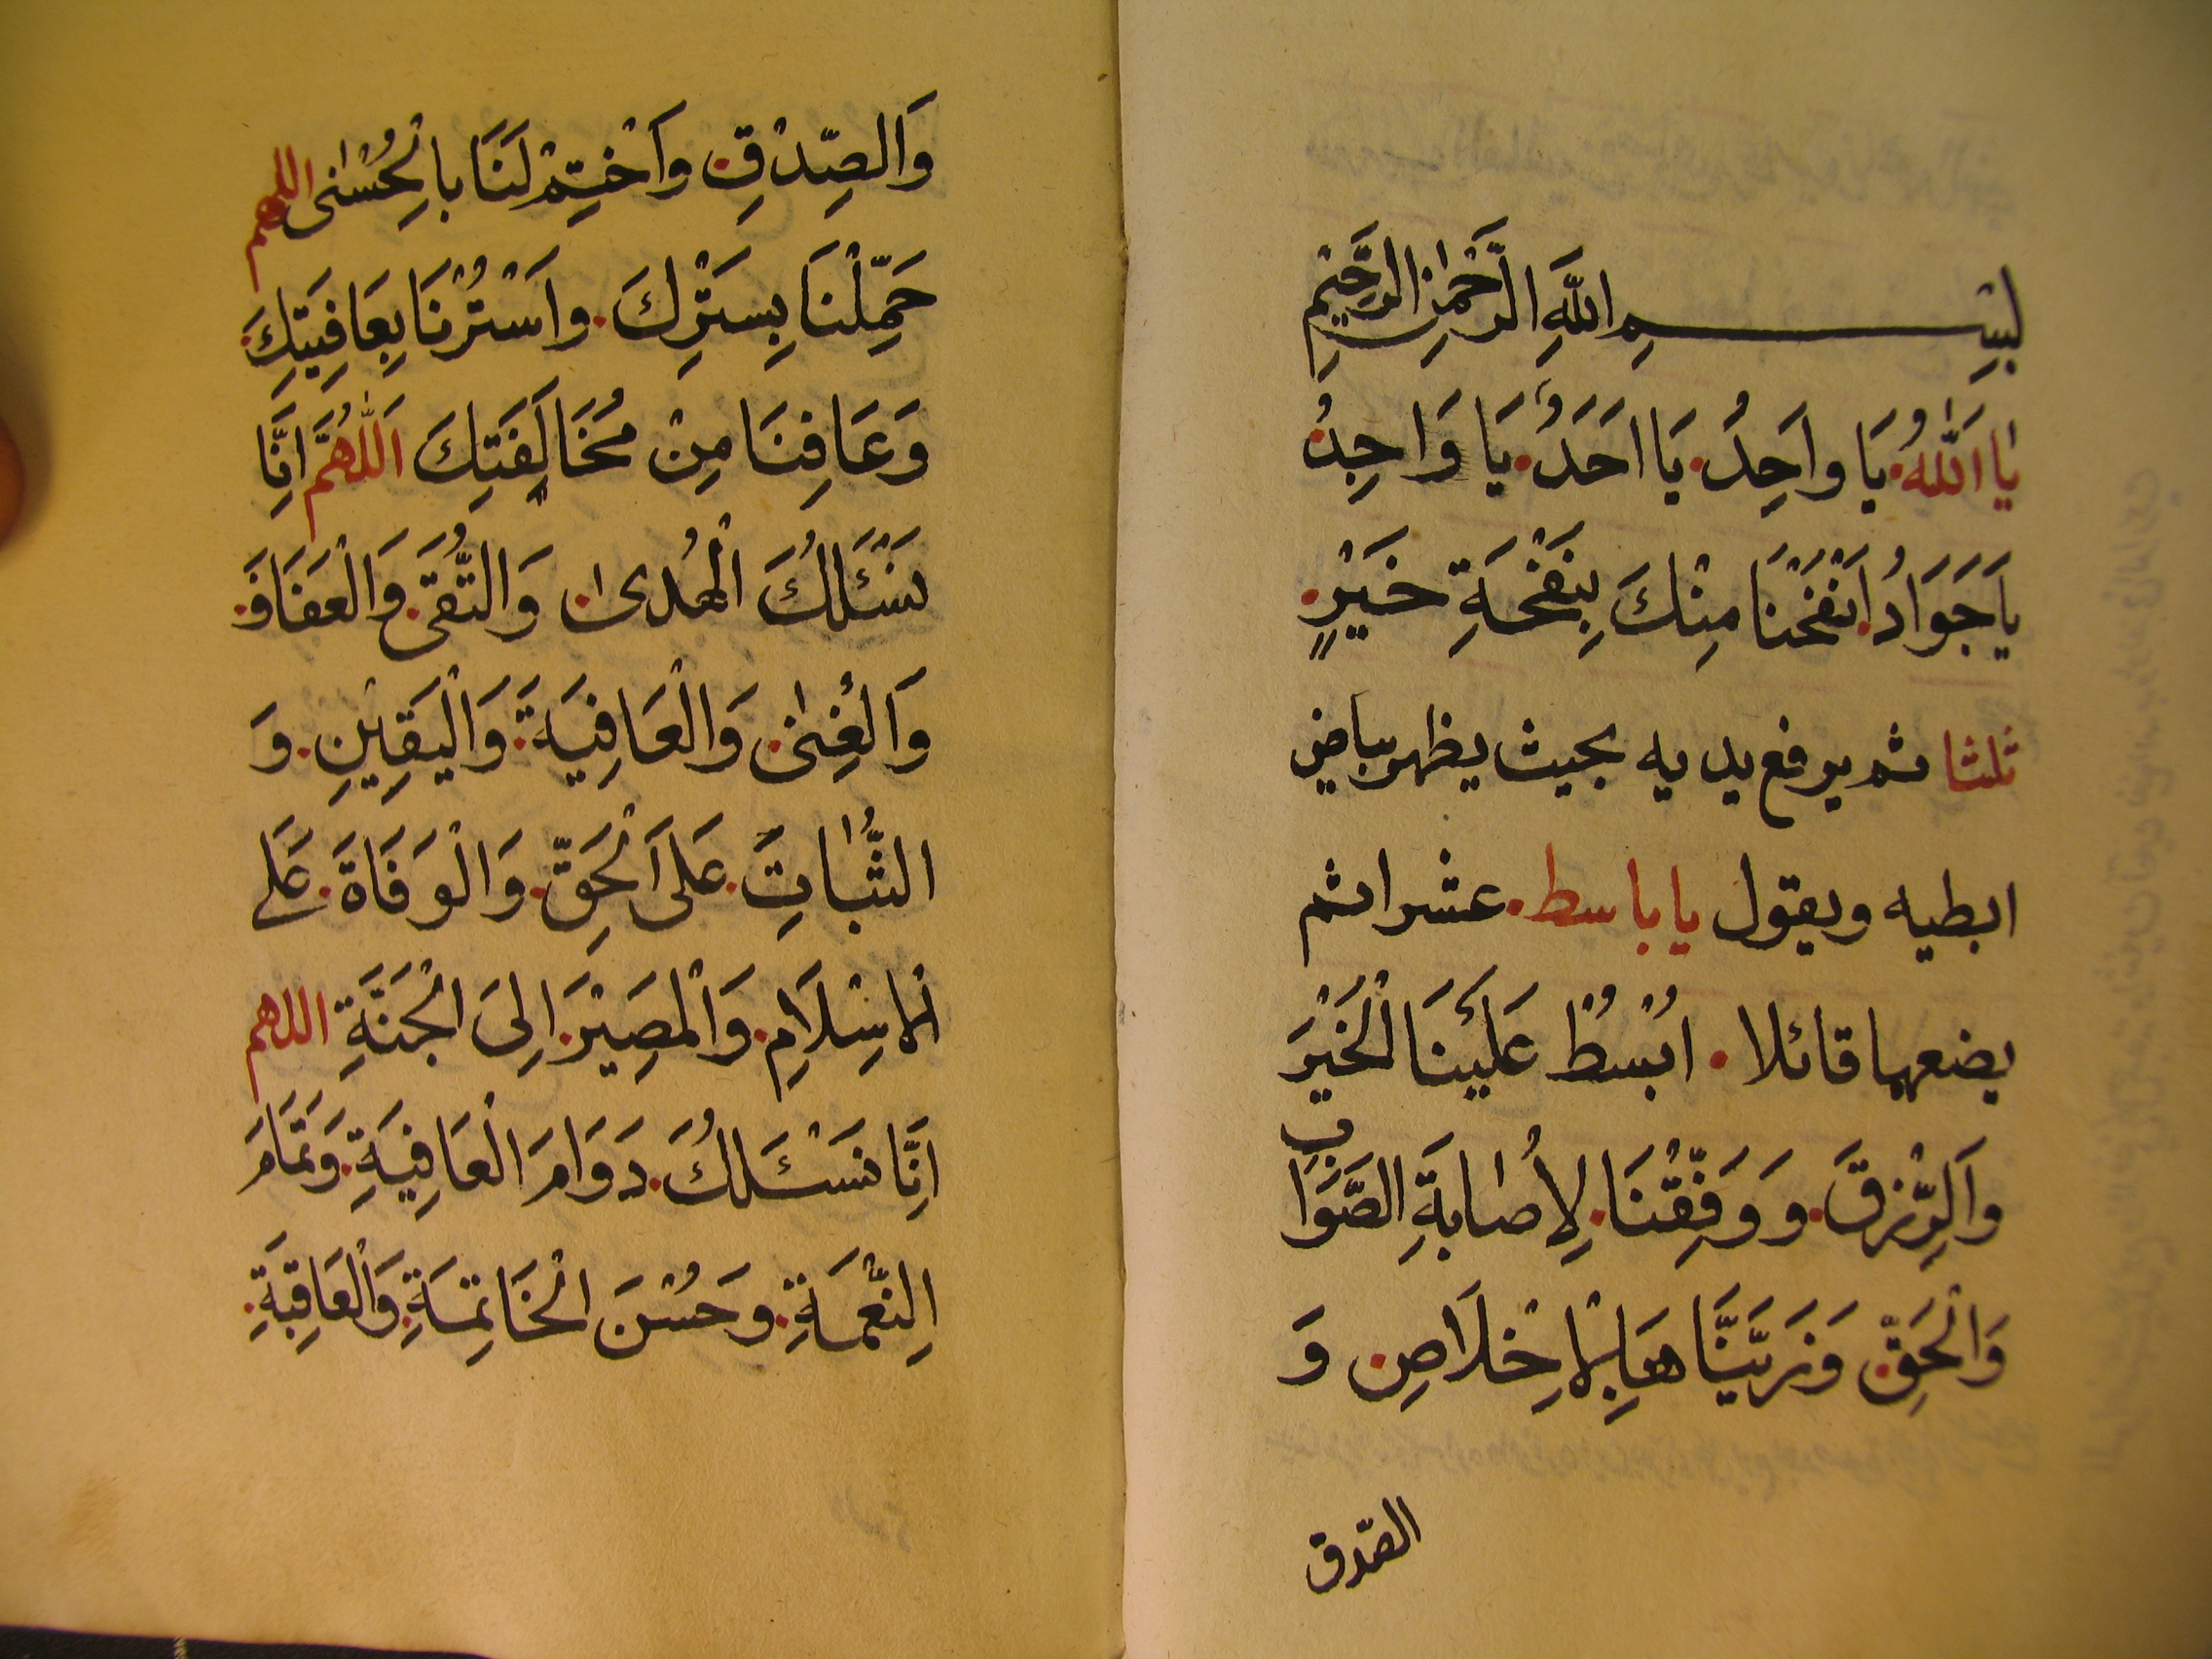 بِسْمِ اللَّهِ الرَّحْمٰنِ الرَّحِيْمِ
يَا اَللّٰهُ. يَا وَاحِدُ. يَا اَحَدُ. يَا وَاجِدُ.
يَاجَوَادُ. اَنْفَحْنَا مِنْكَ بِنَفْحَةِ خَيْرٍ.
ثلثا ثم يرفع يديه بحيث يظهر بياض
ابطيه ويقول يا باسط. عشرا ثم
يضعهما قائلا. ابْسُطْ عَلَيْنَا الْخَيْرَ
وَالرِّزْقَ. وَوَفِّقْنَا. لِاُصَابَةِ الصَّوَابِ
وَالْحَقِّ. وَزَيِّنَّاهَا بِالْاِخْلَاصِ. وَ
الصّدق
وَالصِّدْقِ. وَاَخْتِمْ لَنَا بِالْحُسْنٰى اللهم
جَمِّلْنَا بِسَتْرِكَ. وَاسْتُرْنَا بِعَافِيَتِكَ.
وَعَافِنَا مِنْ مُخَالَفَتِكَ اَللّٰهُمَّ اِنَّا
نَسْئَلُكَ الْهُدىٰ. وَالتُّقَى. وَالْعَفَافَ.
وَالْغِنٰى. وَالْعَافِيَةَ. وَالْيَقِيْنِ. وَ
الثُّبَاتِ. عَلَى الْحَقِّ. وَالْوَفَاةَ. عَلى
الْاِسْلَامِ. وَالْمَصِيْرَ. اِلَى الْجَنَّةِ اللهم
اِنَّا نَسْئَلُكَ. دَوَامَ الْعَافِيَةِ. وَتَمَامَ
النِّعْمَةِ. وَحُسْنَ الْخَاتِمَةِ. وَالْعَاقِبَةِ.